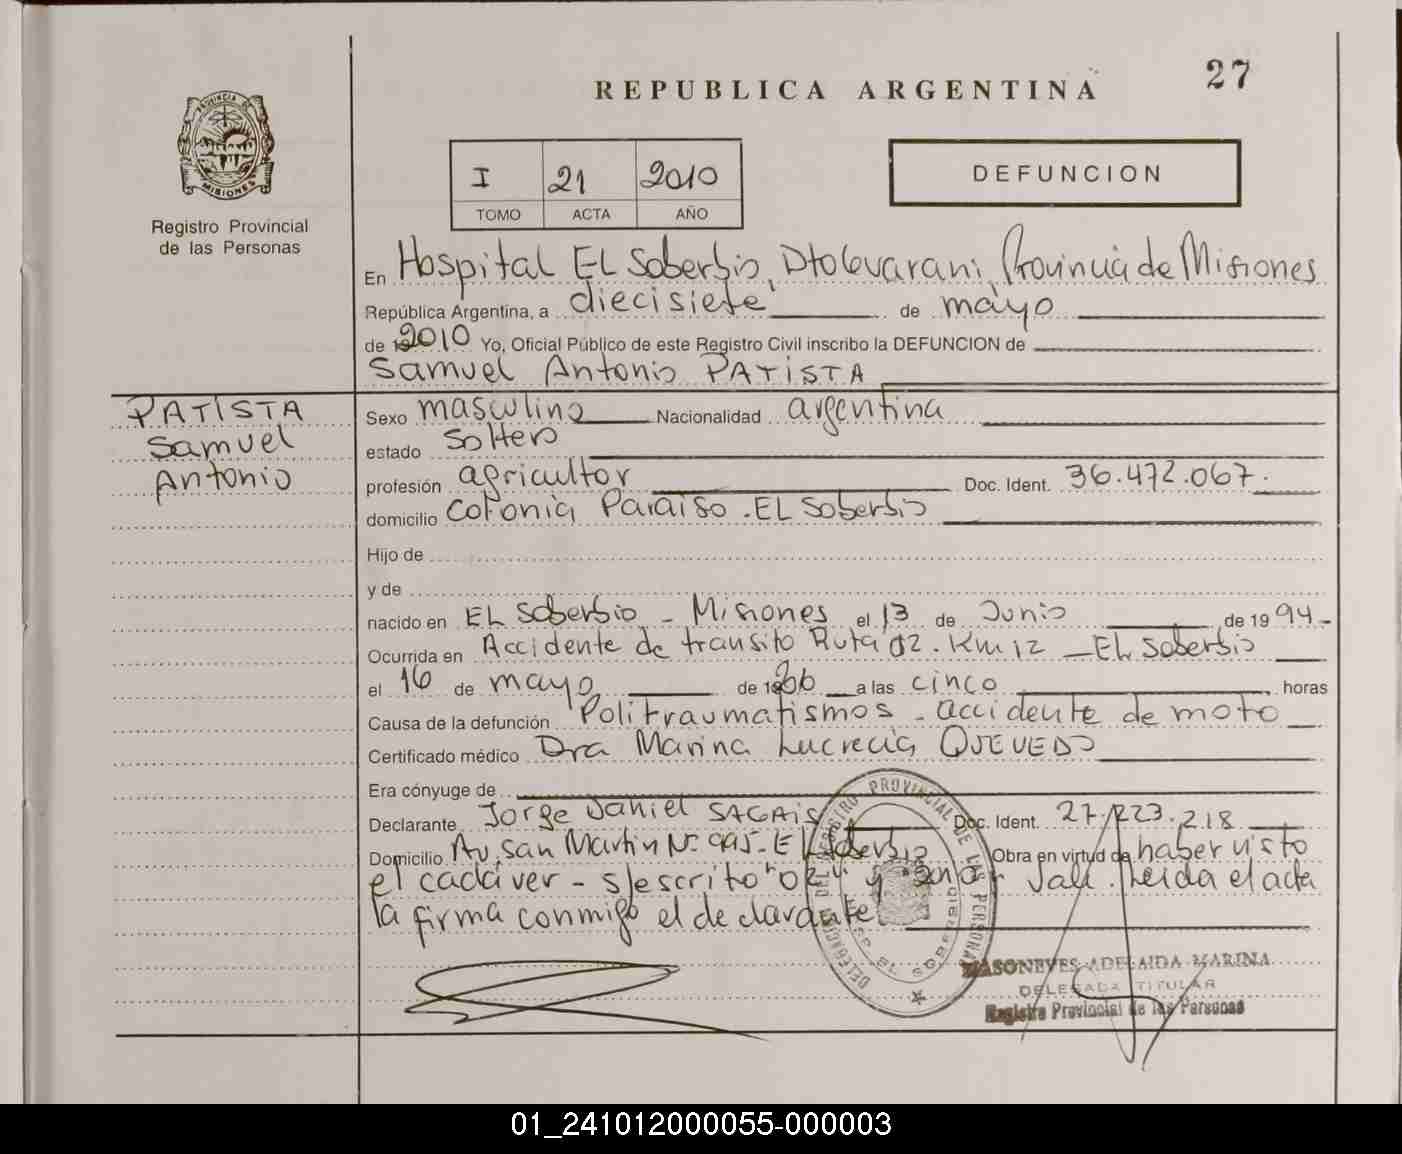 27
REPUBLICA ARGENTINA
PROVINCIA DE
MISIONES
Registro Provincial
de las Personas
I 21 2010
TOMO ACTA AÑO
DEFUNCION
En Hospital EL Soberbio, Dto Guarani, Provincia de Misiones
República Argentina, a diecisiete de mayo
de 2010 Yo, Oficial Público de este Registro Civil inscribo la DEFUNCION de
Samuel Antonio PATISTA
PATISTA
Samuel
Antonio
Sexo masculino Nacionalidad argentina
estado soltero
profesión agricultor Doc. Ident. 36.472.067.
domicilio Colonia Paraiso. EL Soberbio
Hijo de
y de
nacido en EL Soberbio - Misiones el 13 de Junio de 1994-
Ocurrida en Accidente de transito Ruta 02. Km 12 - EL Soberbio
el 16 de mayo de a las cinco horas
Causa de la defunción Politraumatismos - accidente de moto
Certificado médico Dra Marina Lucrecia QUEVEDO
Era cónyuge de
Declarante Jorge Daniel Doc. Ident. 27.223.218
Domicilio Av. San Martin N° - El Soberbio Obra en virtud de haber visto
el cadáver - s/escrito "02" y Vale. Leida el acta
la firma conmigo el declarante
MASONEVES ADELAIDA MARINA
DELEGADA TITULAR
Registro Provincial de las Personas
01_241012000055-000003